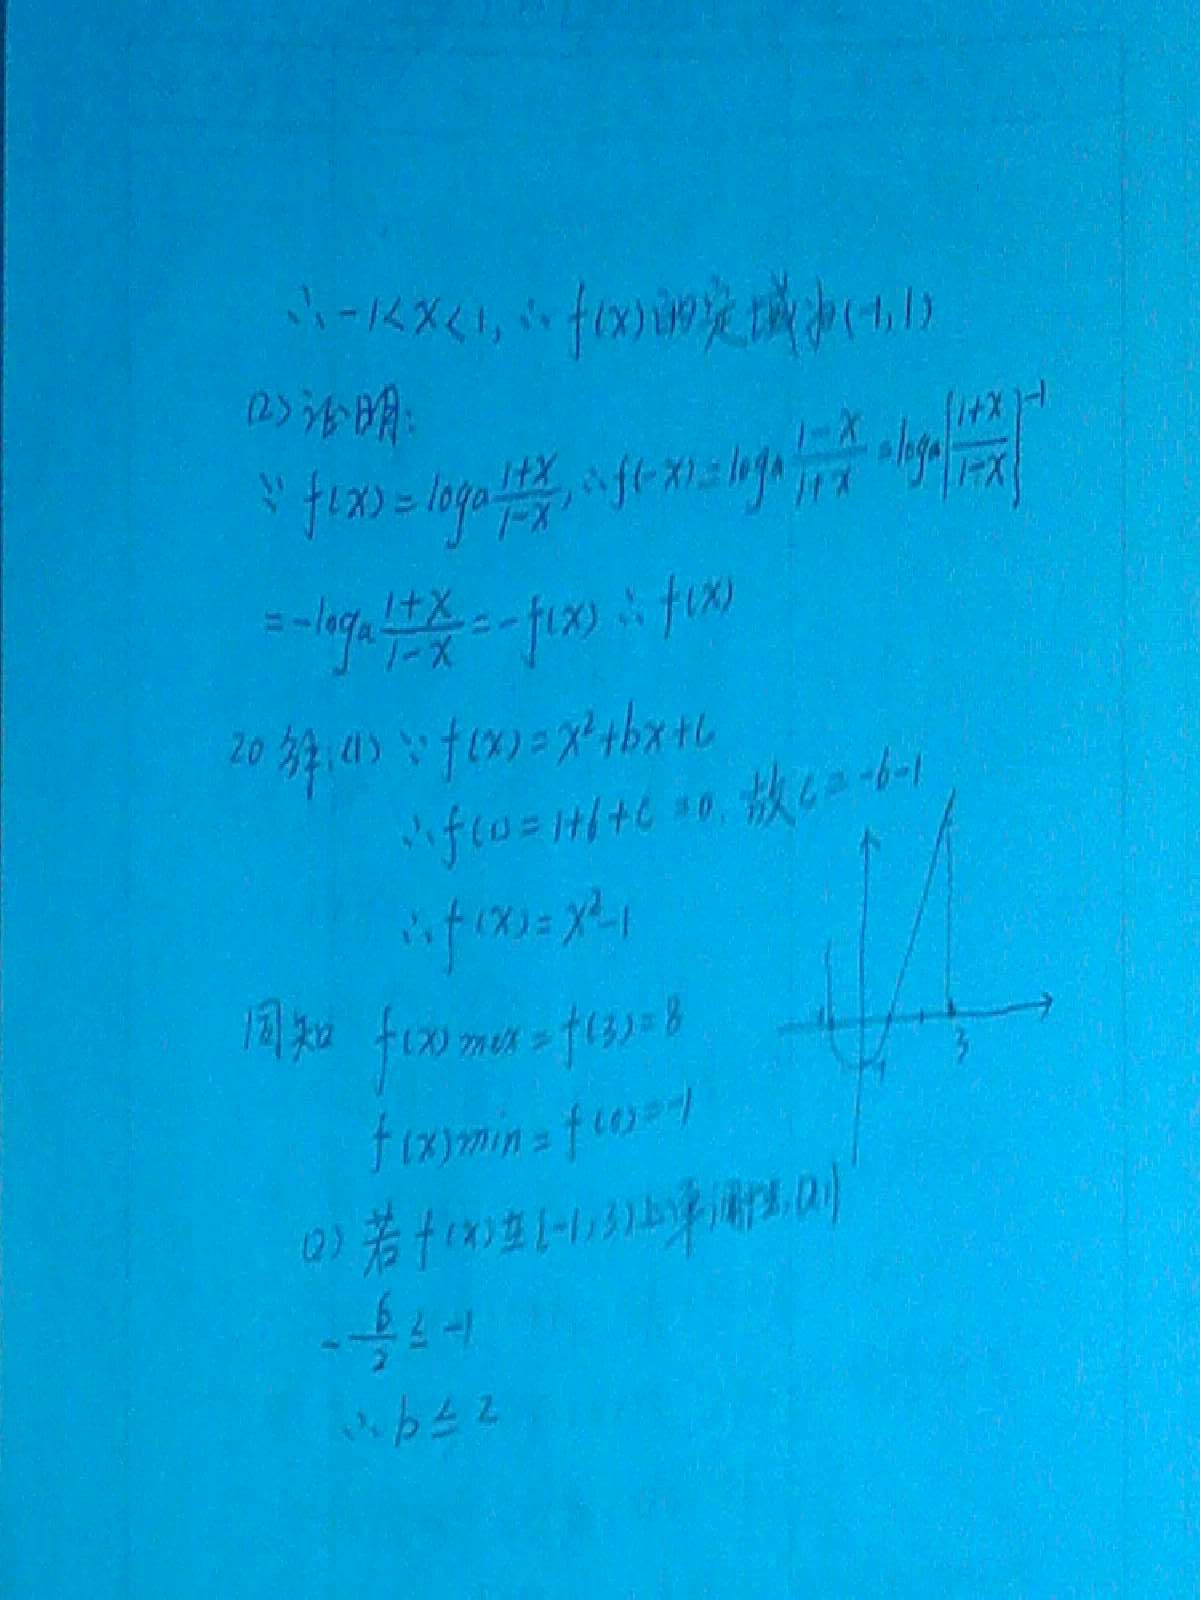 ∴ -1<x<1, ∴ f(x)的定域为(-1,1)
(2)证明:
∵ f(x)=loga (1+x)/(1-x), ∴f(-x)=loga (1-x)/(1+x) =loga[(1+x)/(1-x)]^-1
=-loga (1+x)/(1-x) =-f(x) ∴ f(x)
20 解:(1) ∵ f(x)=x²+bx+c
∴f(1)=1+b+c=0. 故c=-b-1
∴f(x)=x²-1
f(x)max=f(3)=8
f(x)min=f(0)=-1
-1
3
(2) 若f(x)在[-1,3]上单调性,则
-b/2≤-1
∴b≤2